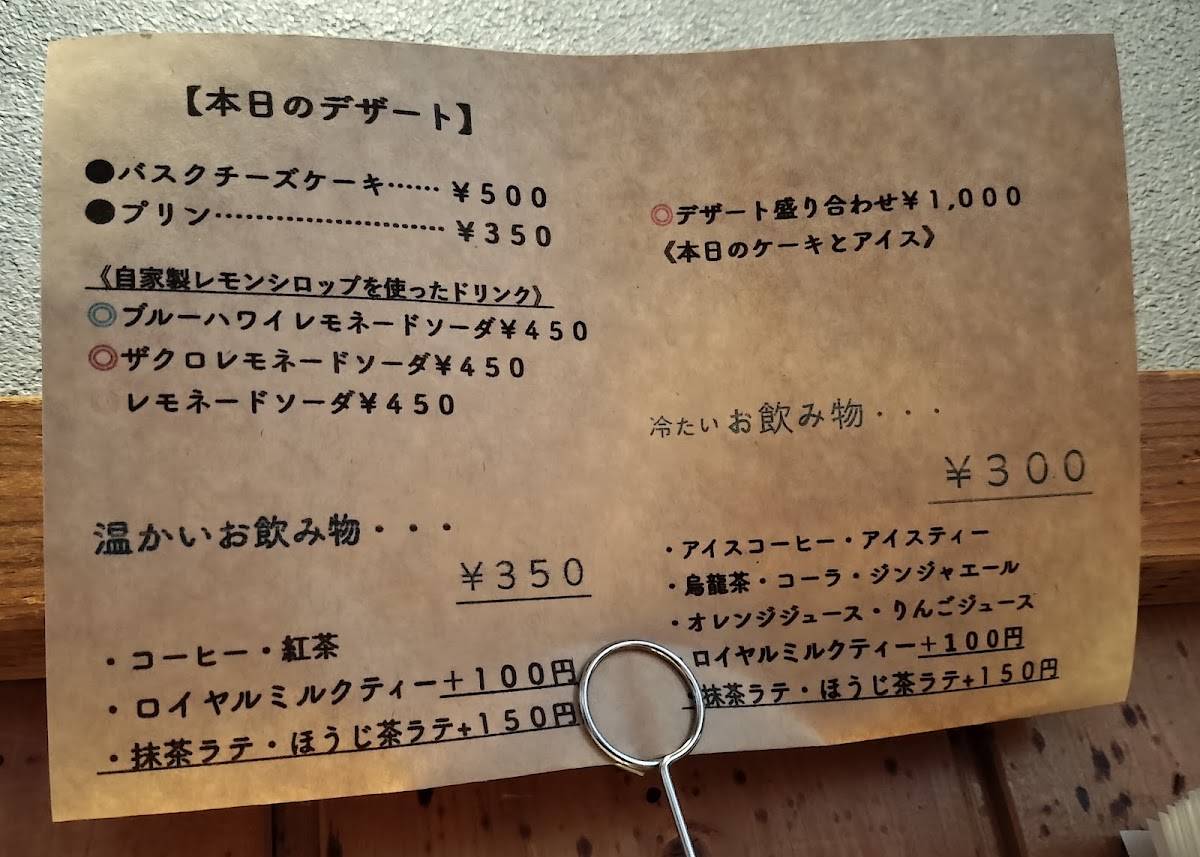 【本日のデザート】
●バスクチーズケーキ…… ¥500
●プリン…………………… ¥350
《自家製レモンシロップを使ったドリンク》
◎ブルーハワイレモネードソーダ¥450
◎ザクロレモネードソーダ¥450
レモネードソーダ¥450
温かいお飲み物・・・
¥350
・コーヒー・紅茶
・ロイヤルミルクティー+100円
・抹茶ラテ・ほうじ茶ラテ+150円
◎デザート盛り合わせ¥1,000
《本日のケーキとアイス》
冷たいお飲み物・・・
¥300
・アイスコーヒー・アイスティー
・烏龍茶・コーラ・ジンジャエール
・オレンジジュース・りんごジュース
ロイヤルミルクティー+100円
・抹茶ラテ・ほうじ茶ラテ+150円